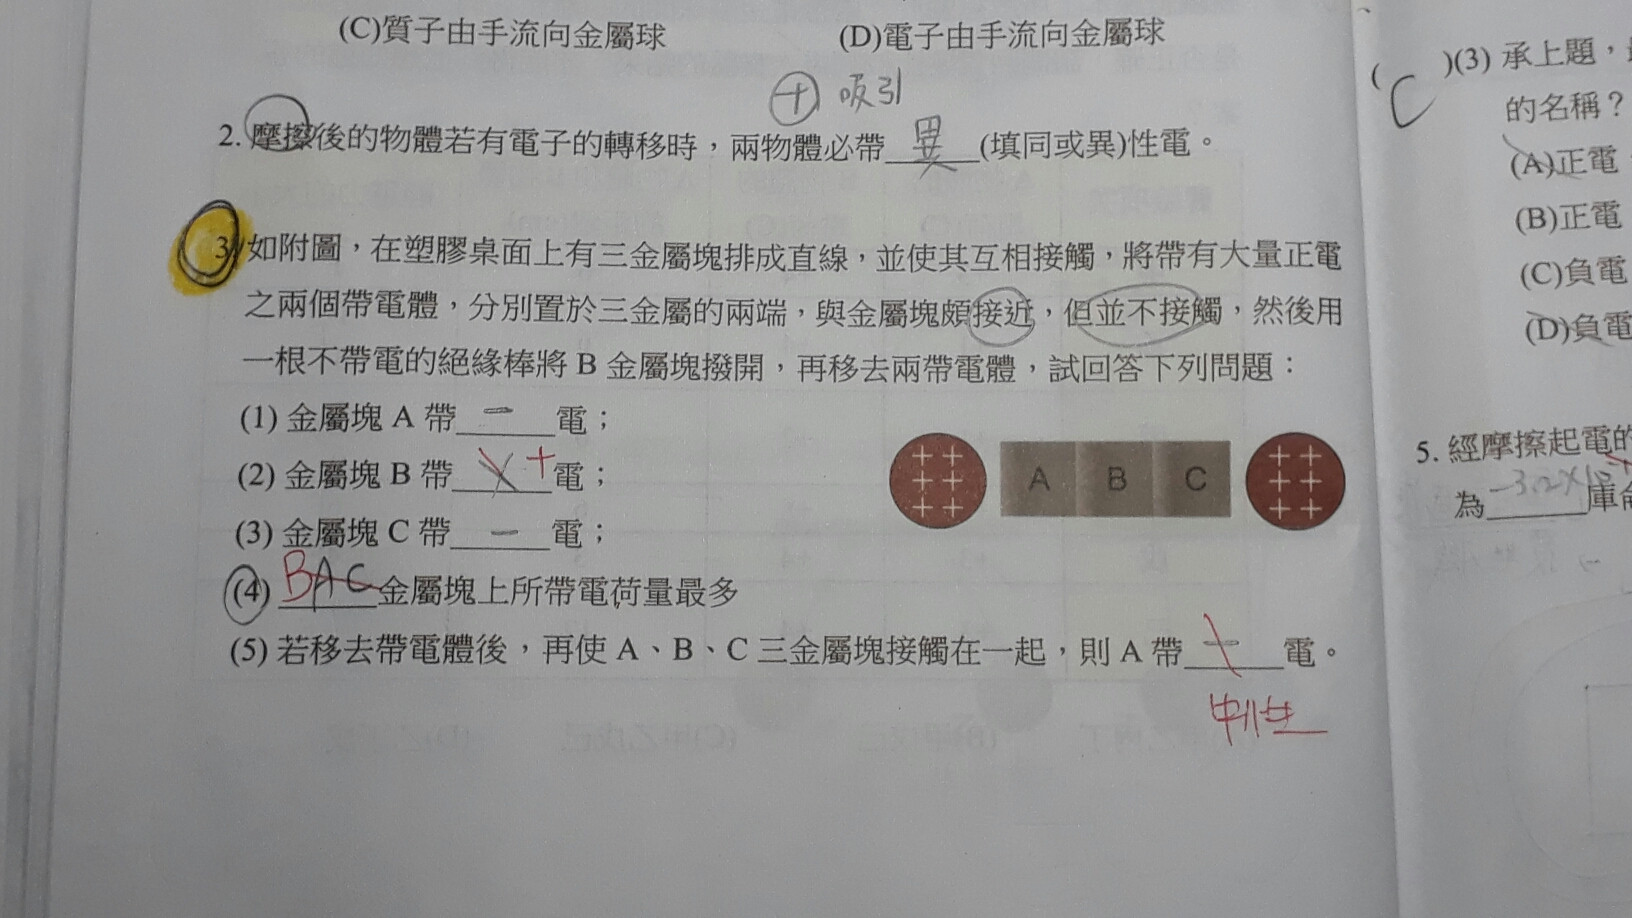 (C)質子由手流向金屬球 (D)電子由手流向金屬球
+ 吸引
2. 摩擦後的物體若有電子的轉移時，兩物體必帶 異 (填同或異)性電。
3. 如附圖，在塑膠桌面上有三金屬塊排成直線，並使其互相接觸，將帶有大量正電
之兩個帶電體，分別置於三金屬的兩端，與金屬塊頗接近，但並不接觸，然後用
一根不帶電的絕緣棒將 B 金屬塊撥開，再移去兩帶電體，試回答下列問題：
(1) 金屬塊 A 帶 − 電；
(2) 金屬塊 B 帶 + 電；
(3) 金屬塊 C 帶 − 電；
(4) B AC 金屬塊上所帶電荷量最多
(5) 若移去帶電體後，再使 A、B、C 三金屬塊接觸在一起，則 A 帶 電。
中性
++ ++ ++ A B C ++ ++ ++
( C )(3) 承上題，
的名稱？
(A)正電
(B)正電
(C)負電
(D)負電
5. 經摩擦起電的
為 庫